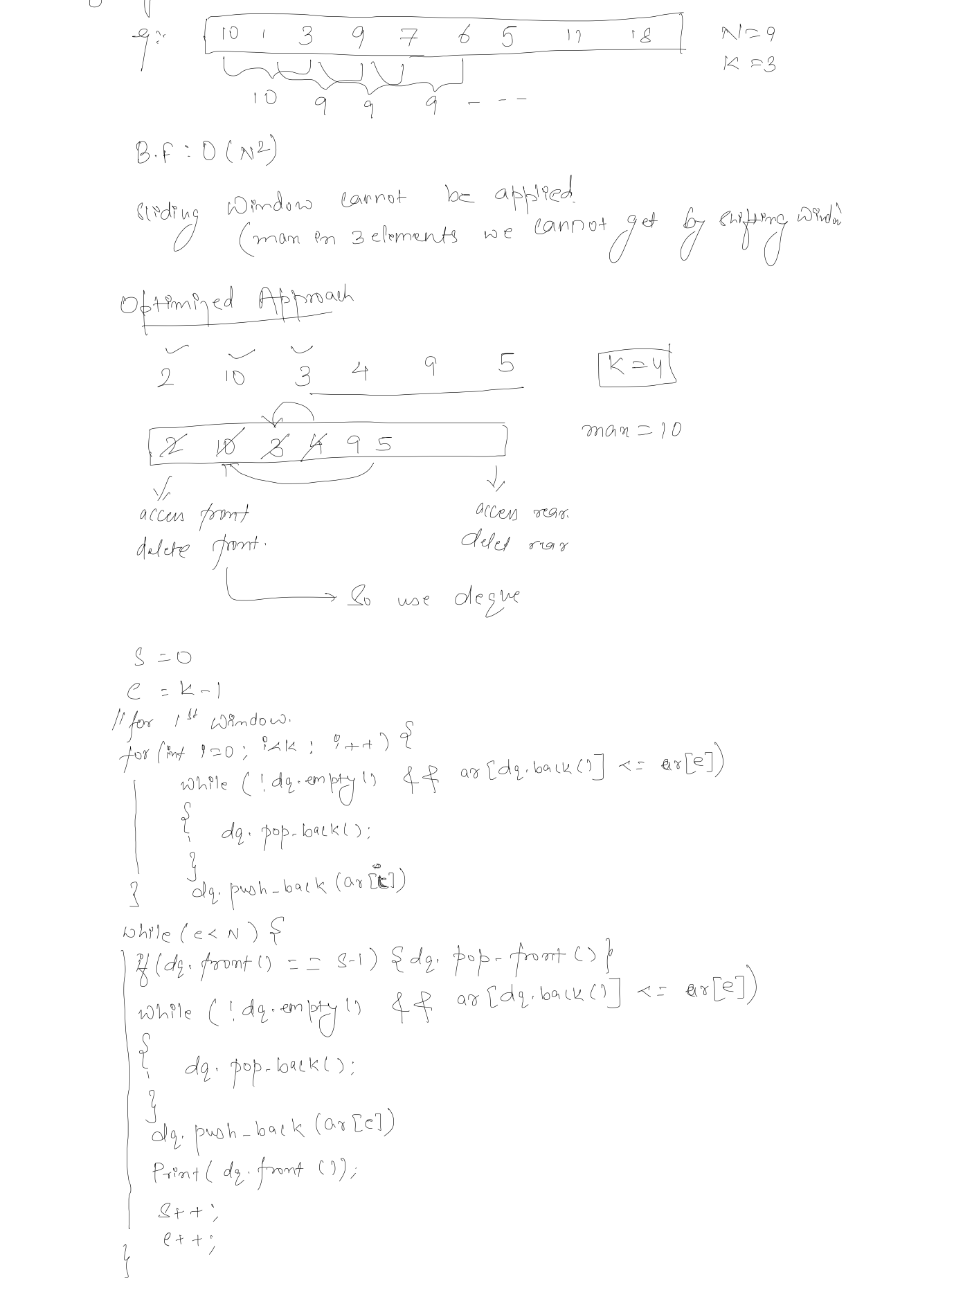 eg:- 10 1 3 9 7 6 5 17 18 N=9
K=3
10 9 9 9 - - -
B.F : O(N2)
Sliding Window cannot be applied.
(max in 3 elements we cannot get by shifting
Optimized Approach
2 10 3 4 9 5 K=4
2 10 3 4 9 5 max = 10
access front access rear.
delete front. delet rear
So use deque
S = 0
e = k-1
// for 1st window.
for (int i=0; i<k; i++) {
while (!dq.empty() && ar[dq.back()] <= ar[e])
{
dq.pop-back();
}
} dq.push-back(ar[i])
while (e<N) {
if (dq.front() == S-1) { dq.pop-front() }
while (!dq.empty() && ar[dq.back()] <= ar[e])
{
dq.pop-back();
}
dq.push-back(ar[e])
Print(dq.front());
S++;
e++;
}